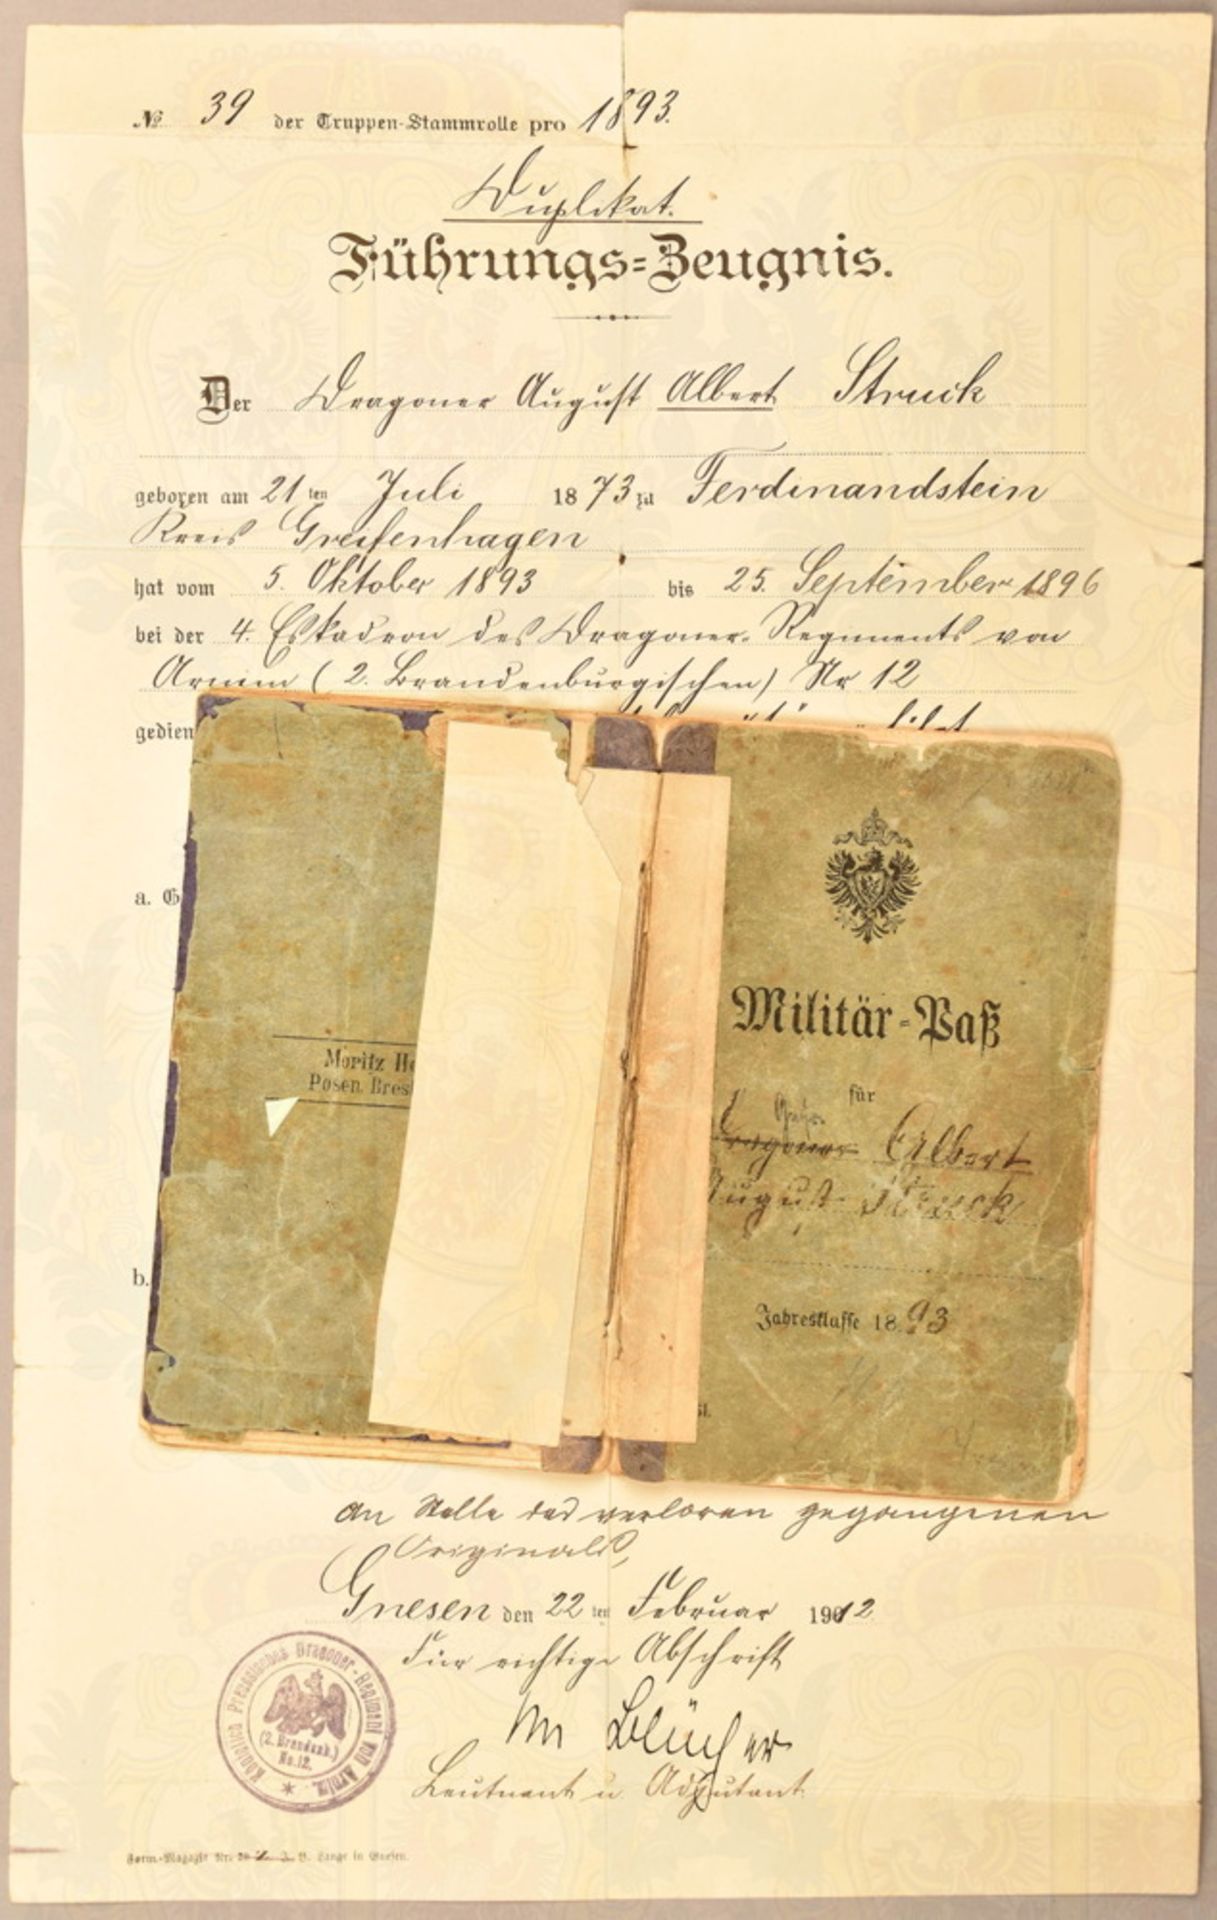 № 39 der Truppen-Stammrolle pro 1893.
Duplikat.
Führungs-Zeugnis.
Der Dragoner August Albert Struck
geboren am 21ten Juli 1873 zu Ferdinandstein
Kreis Greifenhagen
hat vom 5. Oktober 1893 bis 25. September 1896
bei der 4. Eskadron des Dragoner-Regiments von
Arnim (2. Brandenburgischen) Nr 12
gedien
a. G
b.
Moritz He
Posen. Bres
Militär-Paß
für
Dragoner Albert
August Struck
Jahresklasse 1893
An Stelle des verloren gegangenen
Originals,
Gnesen den 22ten Februar 1912
Für richtige Abschrift
Blücher
Leutnant u. Adjutant.
Königlich Preussisches Dragoner-Regiment von Arnim
(2. Brandenb.)
No. 12.
Form.-Magazin Nr. J. B. Lange in Gnesen.